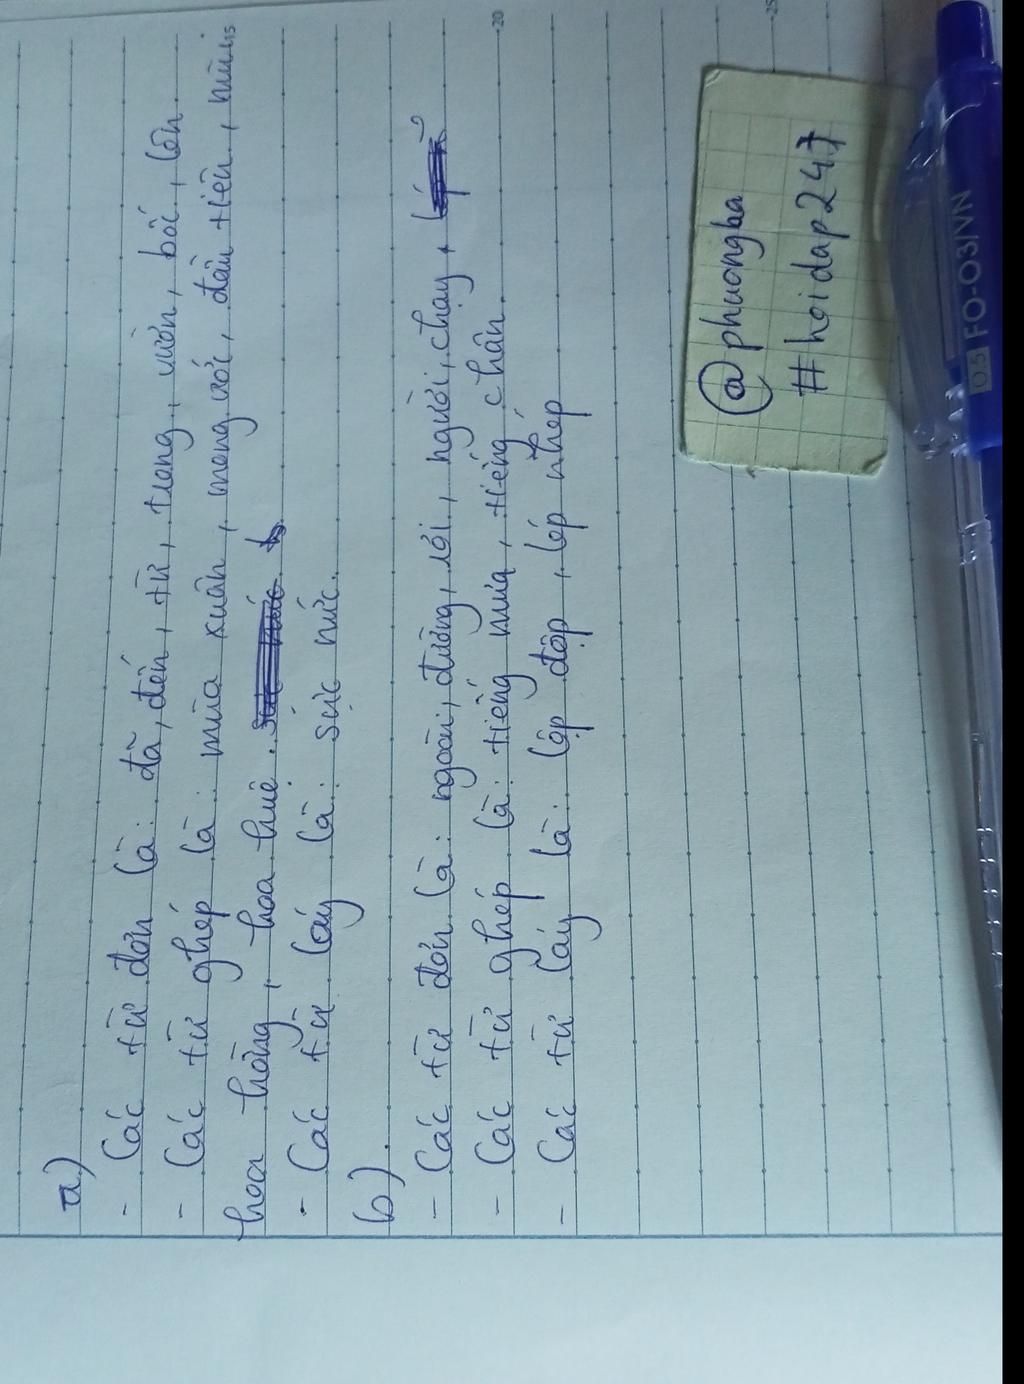 a)
- Các từ đơn là: đã, đến, từ, trong, vườn, bốc, lên
- Các từ ghép là: mùa xuân, mong ước, đầu tiên, mùi
hoa hồng, hoa huệ.
- Các từ láy là: sực nức.
b)
- Các từ đơn là: ngoài, đường, rơi, người, chạy,
- Các từ ghép là: tiếng mưa, tiếng chân.
- Các từ láy là: lộp độp, lép nhép
@phuongba
#hoidap247
0.5 FO-03/VN
15
20
25